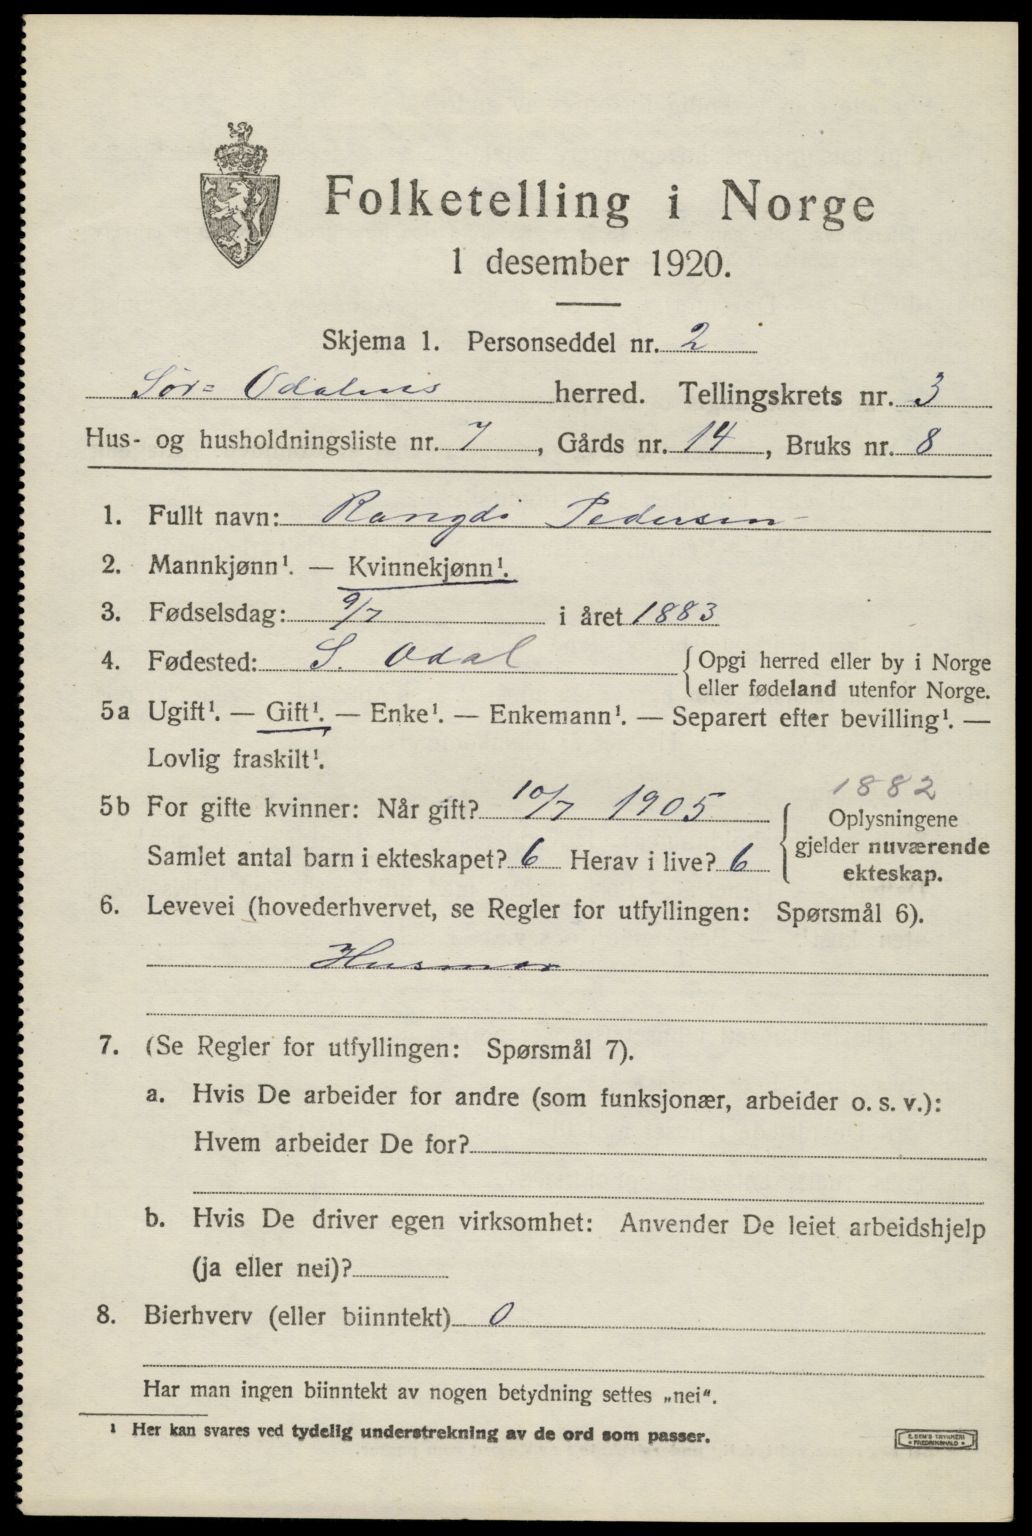 Folketelling i Norge
1 desember 1920.
Skjema 1. Personseddel nr. 2
Sør= Odalens herred. Tellingskrets nr. 3
Hus- og husholdningsliste nr. 7, Gårds nr. 14, Bruks nr. 8
1. Fullt navn: Rangdi Pedersen
2. Mannkjønn¹. — Kvinnekjønn¹.
3. Fødselsdag: 9/7 i året 1883
4. Fødested: S. Odal {Opgi herred eller by i Norge
eller fødeland utenfor Norge.
5a Ugift¹. — Gift¹. — Enke¹. — Enkemann¹. — Separert efter bevilling¹. —
Lovlig fraskilt¹.
1882
5b For gifte kvinner: Når gift? 10/7 1905 { Oplysningene
gjelder nuværende
Samlet antal barn i ekteskapet? 6 Herav i live? 6
ekteskap.
6. Levevei (hovederhvervet, se Regler for utfyllingen: Spørsmål 6).
Husmor
7. (Se Regler for utfyllingen: Spørsmål 7).
a. Hvis De arbeider for andre (som funksjonær, arbeider o. s. v.):
Hvem arbeider De for?
b. Hvis De driver egen virksomhet: Anvender De leiet arbeidshjelp
(ja eller nei)?
8. Bierhverv (eller biinntekt) 0
Har man ingen biinntekt av nogen betydning settes „nei“.
¹ Her kan svares ved tydelig understrekning av de ord som passer.
E. SEM'S TRYKKERI
• FREDRIKSHALD •